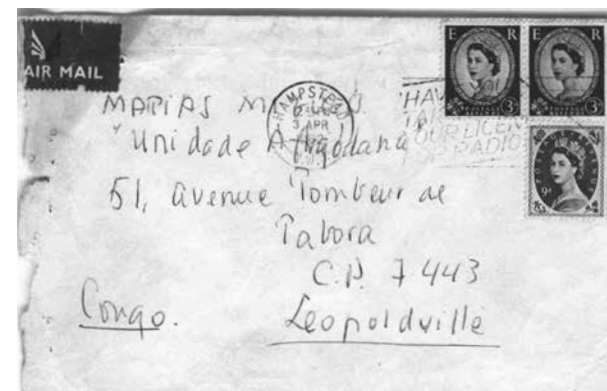 AIR MAIL
E R
3
E R
3
9d
HAMPSTEAD
3 APR
HAV
OUR LICEN
OR RADIO
MATIAS
"Unidade Angolana"
51, avenue Tombeur de
Tabora
C.P. 7443
Congo.
Leopoldville